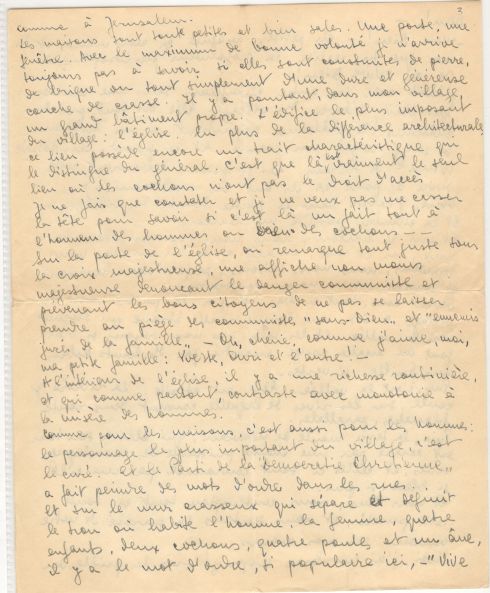 2
comme à Jérusalem.
Les maisons sont toute petites et bien sales. Une porte, une
fenêtre. Avec le maximum de bonne volonté je n'arrive
toujours pas à savoir si elles sont construites de pierre,
de brique ou tout simplement d'une dure et généreuse
couche de crasse. Il y a pourtant, dans mon village,
un grand bâtiment propre. L'édifice le plus imposant
du village: l'église. En plus de la différence architecturale
ce lieu possède encore un trait charactéristique qui
le distingue du général. C'est que là, vraiment le seul
lieu où les cochons n'ont pas le droit d'accès
Je ne fais que constater et je ne veux pas me casser
la tête pour savoir si c'est là un fait tout à
l'honneur des hommes ou des cochons - -
Sur la porte de l'église, on remarque tout juste sous
la croix majestueuse, une affiche non moins
majestueuse dénonçant le danger communiste et
prévenant les bons citoyens de ne pas se laisser
prendre au piège des communistes "sans-Dieu" et "ennemis
jurés de la famille" - Oh, chérie, comme j'aime, moi,
ma p'tite famille: Yvette, Ouri et l'autre! -
A l'intérieur de l'église, il y a une richesse routinière,
et qui comme partout, contraste avec monotonie à
la misère des hommes.
Comme pour les maisons, c'est aussi pour les hommes:
le personnage le plus important du village, c'est
le curé. Et le Parti de la Democratie Chretienne"
a fait peindre des mots d'ordre dans les rues..
et sur le murs crasseux qui sépare et définit
le trou où habite l'homme, la femme, quatre
enfants, deux cochons, quatre poules et un âne,
il y a le mot d'ordre, si populaire ici, - "Vive